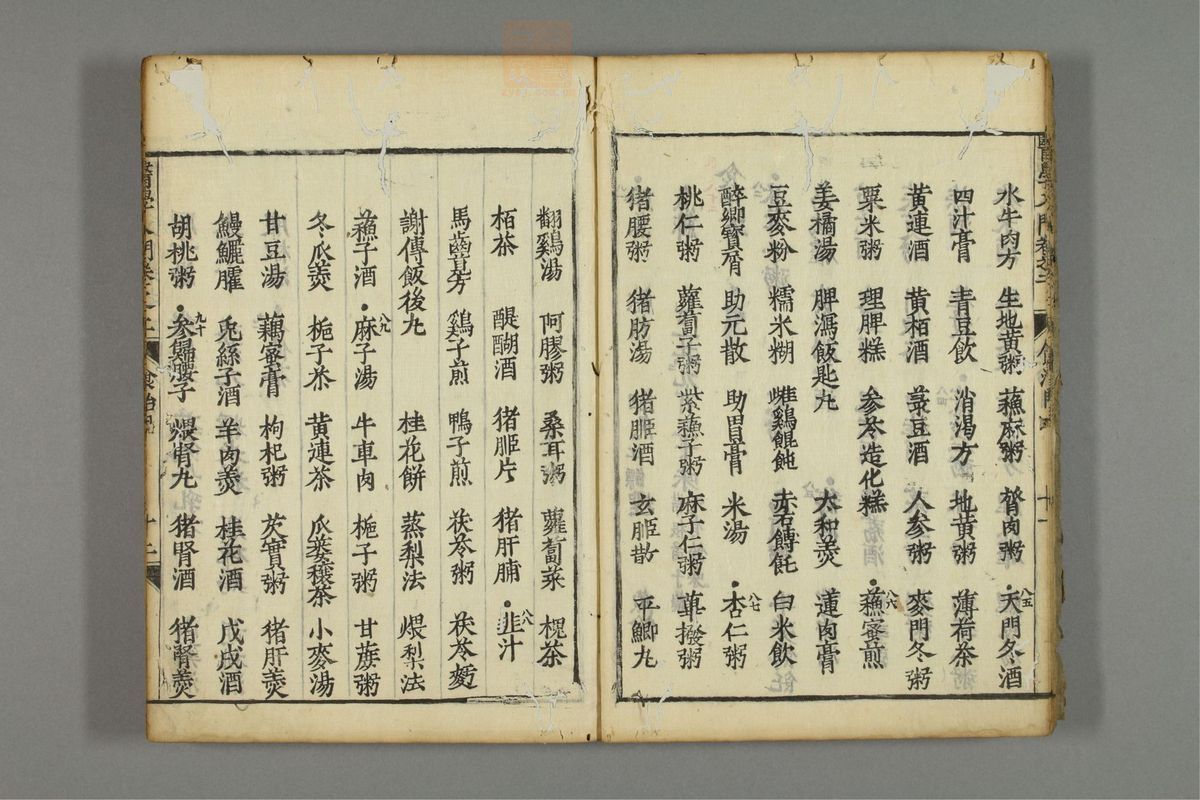 水牛肉方 生地黄粥 蘇麻粥 𦚾肉粥 ●八五天門冬酒
四汁膏 青豆飲 消渴方 地黄粥 薄荷茶
黄連酒 黄栢酒 菉豆酒 人參粥 麥門冬粥
粟米粥 理脾糕 參苓造化糕 ●八六蘇蜜煎
姜橘湯 脾瀉飯匙丸 太和羮 蓮肉膏
豆麥粉 糯米糊 雌鷄餛飩 赤石餺飥 白米飲
醉鄉寶屑 助元散 助胃膏 米湯 ●八七杏仁粥
桃仁粥 蘿蔔子粥 紫蘇子粥 麻子仁粥 蓽撥粥
猪腰粥 猪肪湯 猪胵酒 玄胵散 平鯽丸
翻鷄湯 阿膠粥 桑耳粥 蘿蔔菜 槐茶
栢茶 醍醐酒 猪胵片 猪肝脯 ●八八韭汁
馬齒莧芳 鷄子煎 鴨子煎 茯苓粥 茯苓麪
謝傅飯後丸 桂花餅 蒸梨法 煨梨法
蘇子酒 ●八九麻子湯 牛車肉 梔子粥 甘蔗粥
冬瓜羮 梔子茶 黄連茶 瓜蔞穰茶 小麥湯
甘豆湯 藕蜜膏 枸杞粥 芡實粥 猪肝羮
鰻鱺臛 兎絲子酒 羊肉羮 桂花酒 戊戌酒
胡桃粥 ●九十參歸腰子 煨腎丸 猪腎酒 猪腎羮